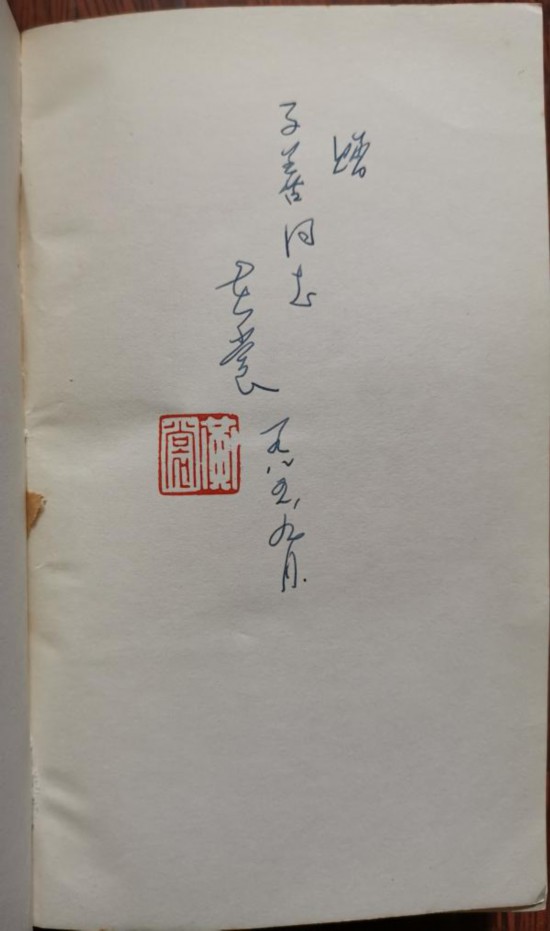 赠
子善同志
黄裳
一九八五、九月.
黄裳